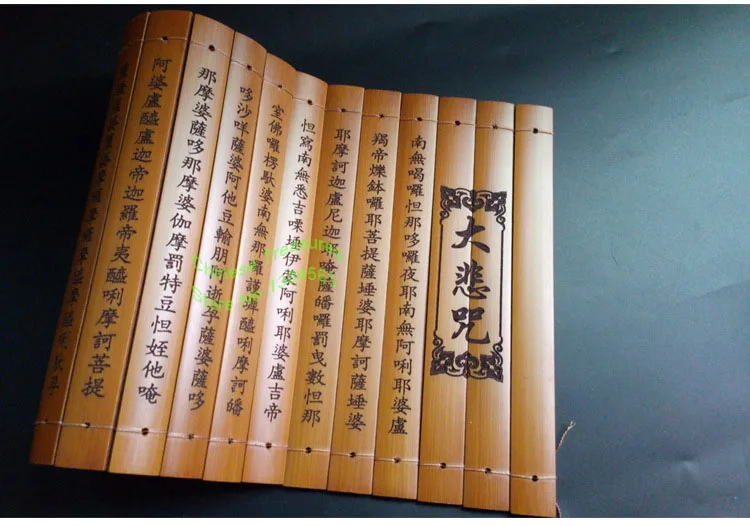 大悲咒
南無喝囉怛那哆囉夜耶南無阿唎耶婆盧
羯帝爍鉢囉耶菩提薩埵婆耶摩訶薩埵婆
耶摩訶迦盧尼迦耶唵薩皤囉罰曳數怛那
怛寫南無悉吉㗚埵伊蒙阿唎耶婆盧吉帝
室佛囉楞馱婆南無那囉謹墀醯唎摩訶皤
哆沙咩薩婆阿他豆輸朋阿逝孕薩婆薩哆
那摩婆薩哆那摩婆伽摩罰特豆怛姪他唵
阿婆盧醯盧迦帝迦羅帝夷醯唎摩訶菩提
Chinese treasures
Store no